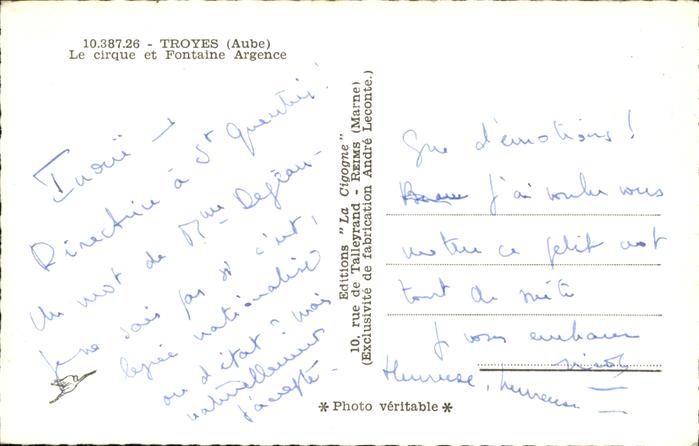 10.387.26 - TROYES (Aube)
Le cirque et Fontaine Argence
Inouï -
Directrice à St Quentin !
Un mot de Mme
je ne sais pas si c'est
lycée nationalisé
ou d'état ? mais
naturellement
j'accepte -
Editions "La Cigogne"
10, rue de Talleyrand - REIMS (Marne)
(Exclusivité de fabrication André Leconte.)
Que d'émotions !
J'ai voulu vous
mettre ce petit mot
tout de suite
Je vous embrasse
Heureuse, heureuse
* Photo véritable *